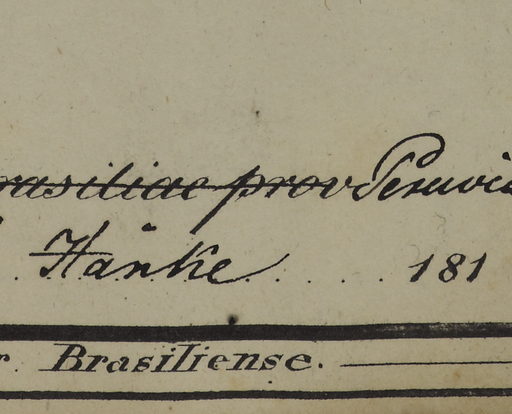 rasiliae prov Peruvia
Hänke 181
r. Brasiliense.